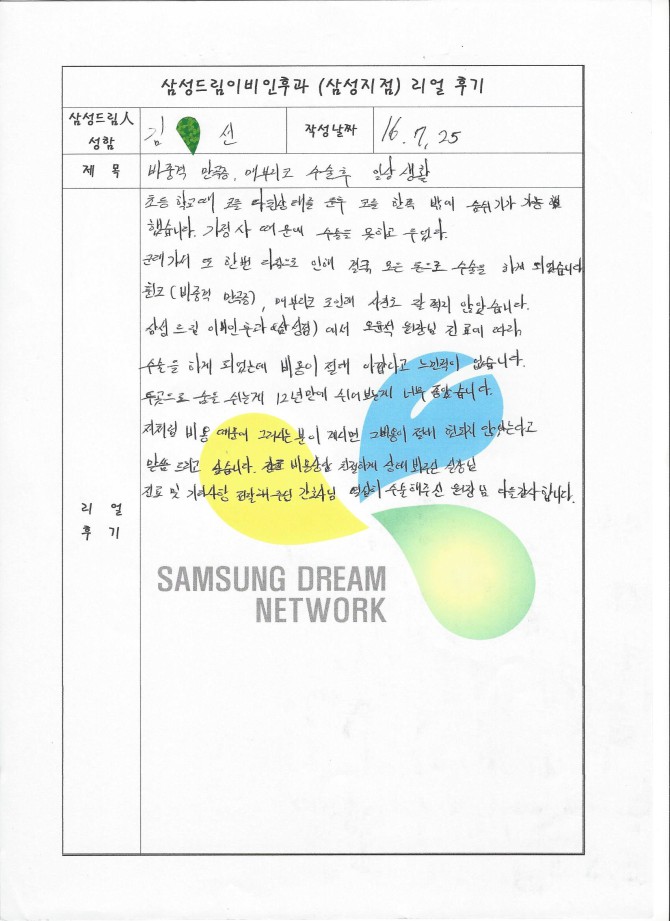 삼성드림이비인후과 (삼성지점) 리얼 후기
삼성드림人
성함
김 선
작성날짜
16. 7. 25
제 목
비중격 만곡증, 매부리코 수술후 일상 생활
리 얼
후 기
초등 학교때 코를 다친상태를 한쪽 밖에 숨쉬기가 가능
했습니다. 가정사 때문에 수술을 못하고
군대가서 또 한번 다침으로 인해 결국 모은 돈으로 수술을 하게 되었습니다
휜코(비중격 만곡증), 매부리코 코인데 사연도 갈 적지 않았습니다.
삼성 드림 이비인후과(삼성점) 에서 오윤석 원장님 진료에 따라,
수술을 하게 되었는데 비용이 절대 아깝다고 느낀적이 없습니다.
두곳으로 숨을 쉬는게 12년만에 쉬어보는게 너무 좋았습니다.
저처럼 비용 때문에 그러시는 분이 계시면 그비용이 절대 않는다고
말씀 드리고 싶습니다. 비용상담 친절하게 상대 해주신 실장님
진료 및 기타사항 전달해 주신 간호사님 열심히 수술해주신 원장님 다들감사합니다.
SAMSUNG DREAM
NETWORK